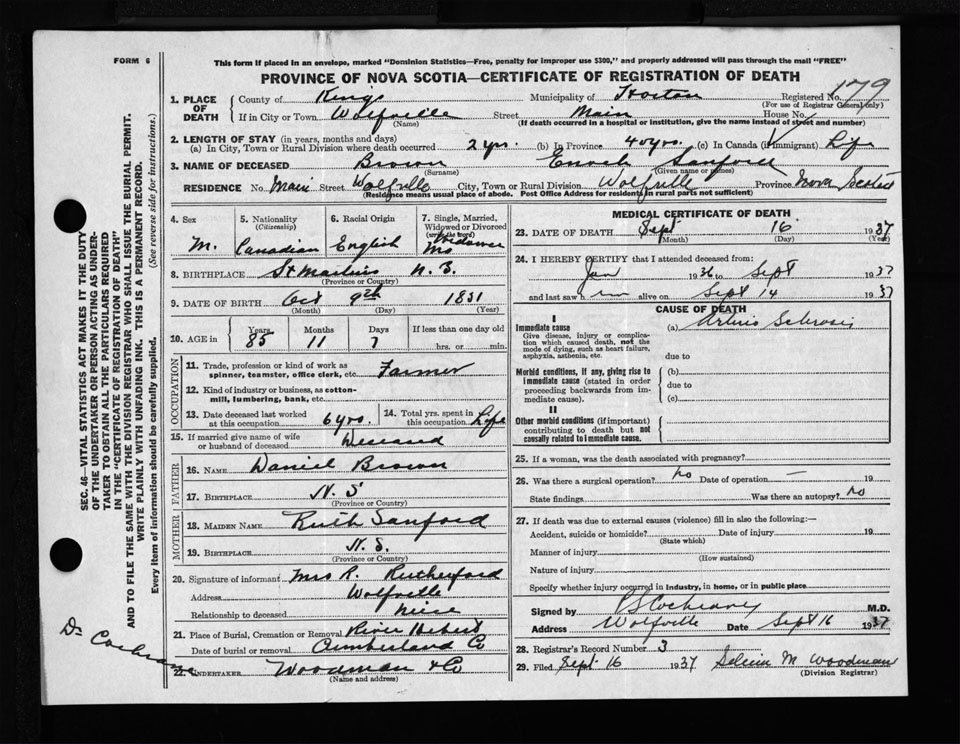 FORM 6
This form if placed in an envelope, marked "Dominion Statistics—Free, penalty for improper use $300," and properly addressed will pass through the mail "FREE"
PROVINCE OF NOVA SCOTIA—CERTIFICATE OF REGISTRATION OF DEATH
179
1. PLACE OF DEATH County of Kings Municipality of Horton Registered No.
(For use of Registrar General only)
If in City or Town Wolfville Street Main House No.
(Name) (If death occurred in a hospital or institution, give the name instead of street and number)
2. LENGTH OF STAY (in years, months and days)
(a) In City, Town or Rural Division where death occurred 2 yrs. (b) In Province 40 yrs. (c) In Canada (if immigrant) Life
3. NAME OF DECEASED Brown Enoch Sanford
(Surname) (Given name or names)
RESIDENCE No. Main Street Wolfville City, Town or Rural Division Wolfville Province Nova Scotia
(Residence means usual place of abode. Post Office Address for residents in rural parts not sufficient)
4. Sex 5. Nationality 6. Racial Origin 7. Single, Married, Widowed or Divorced
(Citizenship) (write the word)
M. Canadian English Widower
8. BIRTHPLACE St Martins N. S.
(Province or Country)
9. DATE OF BIRTH Oct 9th 1851
(Month) (Day) (YEAR)
10. AGE in Years Months Days If less than one day old
85 11 7 hrs. or min.
OCCUPATION
11. Trade, profession or kind of work as spinner, teamster, office clerk, etc. Farmer
12. Kind of industry or business, as cotton-mill, lumbering, bank, etc.
13. Date deceased last worked at this occupation 6 yrs. 14. Total yrs. spent in this occupation Life
15. If married give name of wife or husband of deceased
FATHER
16. NAME Daniel Brown
17. BIRTHPLACE N. S
(Province or Country)
MOTHER
18. MAIDEN NAME Ruth Sanford
19. BIRTHPLACE N. S.
(Province or Country)
20. Signature of informant Mrs R. Rutherford
Address Wolfville
Relationship to deceased Niece
21. Place of Burial, Cremation or Removal River Hebert
Date of burial or removal Cumberland Co
22. UNDERTAKER Woodman & Co
(Name and address)
MEDICAL CERTIFICATE OF DEATH
23. DATE OF DEATH Sept 16 1937
(Month) (Day) (Year)
24. I HEREBY CERTIFY that I attended deceased from:
Jan 1936 to Sept 1937
and last saw him alive on Sept 14 1937
CAUSE OF DEATH
I
Immediate cause (a) Arterio Sclerosis
Give disease, injury or complication which caused death, not the mode of dying, such as heart failure, asphyxia, asthenia, etc.
due to
Morbid conditions, if any, giving rise to immediate cause (stated in order proceeding backwards from immediate cause).
(b)
due to
(c)
II
Other morbid conditions (if important) contributing to death but not causally related to immediate cause.
25. If a woman, was the death associated with pregnancy?
26. Was there a surgical operation? no Date of operation — 19
State findings Was there an autopsy? no
27. If death was due to external causes (violence) fill in also the following:—
Accident, suicide or homicide? Date of injury 19
(State which)
Manner of injury
(How sustained)
Nature of injury
Specify whether injury occurred in industry, in home, or in public place
Signed by M.D.
Address Wolfville Date Sept 16 1937
28. Registrar's Record Number 3
29. Filed Sept 16 1937 M Woodman
(Division Registrar)
SEC. 46—VITAL STATISTICS ACT MAKES IT THE DUTY
OF THE UNDERTAKER OR PERSON ACTING AS UNDER-
TAKER TO OBTAIN ALL THE PARTICULARS REQUIRED
IN THE "CERTIFICATE OF REGISTRATION OF DEATH"
AND TO FILE THE SAME WITH THE DIVISION REGISTRAR WHO SHALL ISSUE THE BURIAL PERMIT.
WRITE PLAINLY WITH UNFADING INK. THIS IS A PERMANENT RECORD.
Every item of information should be carefully supplied. (See reverse side for instructions.)
Dr Cochrane